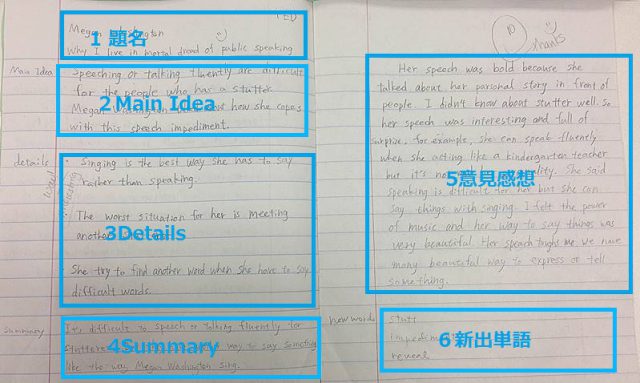 TED
Megan Washington
1 題名
Why I live in mortal dread of public speaking
Main Idea
Speeching or talking fluently are difficult
for the people who has a stutter.
2Main Idea
Megan how she copes
with this speech impediment.
details
Singing is the best way she has to say
rather than speaking.
The worst situation for her is meeting
3Details
She try to find another word when she have to say
difficult words.
Summary
It's difficult to speech or talking fluently for
4Summary
way to say something
like the way Megan Washington sing.
10
Thanks
Her speech was bold because she
talked about her personal story in front of
people. I didn't know about stutter well. So
her speech was interesting and full of
surprise. for example, she can speak fluently
when she acting like a kindergarten teacher
but it's
5意見感想
She said
speaking is difficult for her but she can
say things with singing. I felt the power
of music and her way to say things was
very beautiful. Her speech me we have
many beautiful way to express or tell
something.
new words
6新出単語
reveal